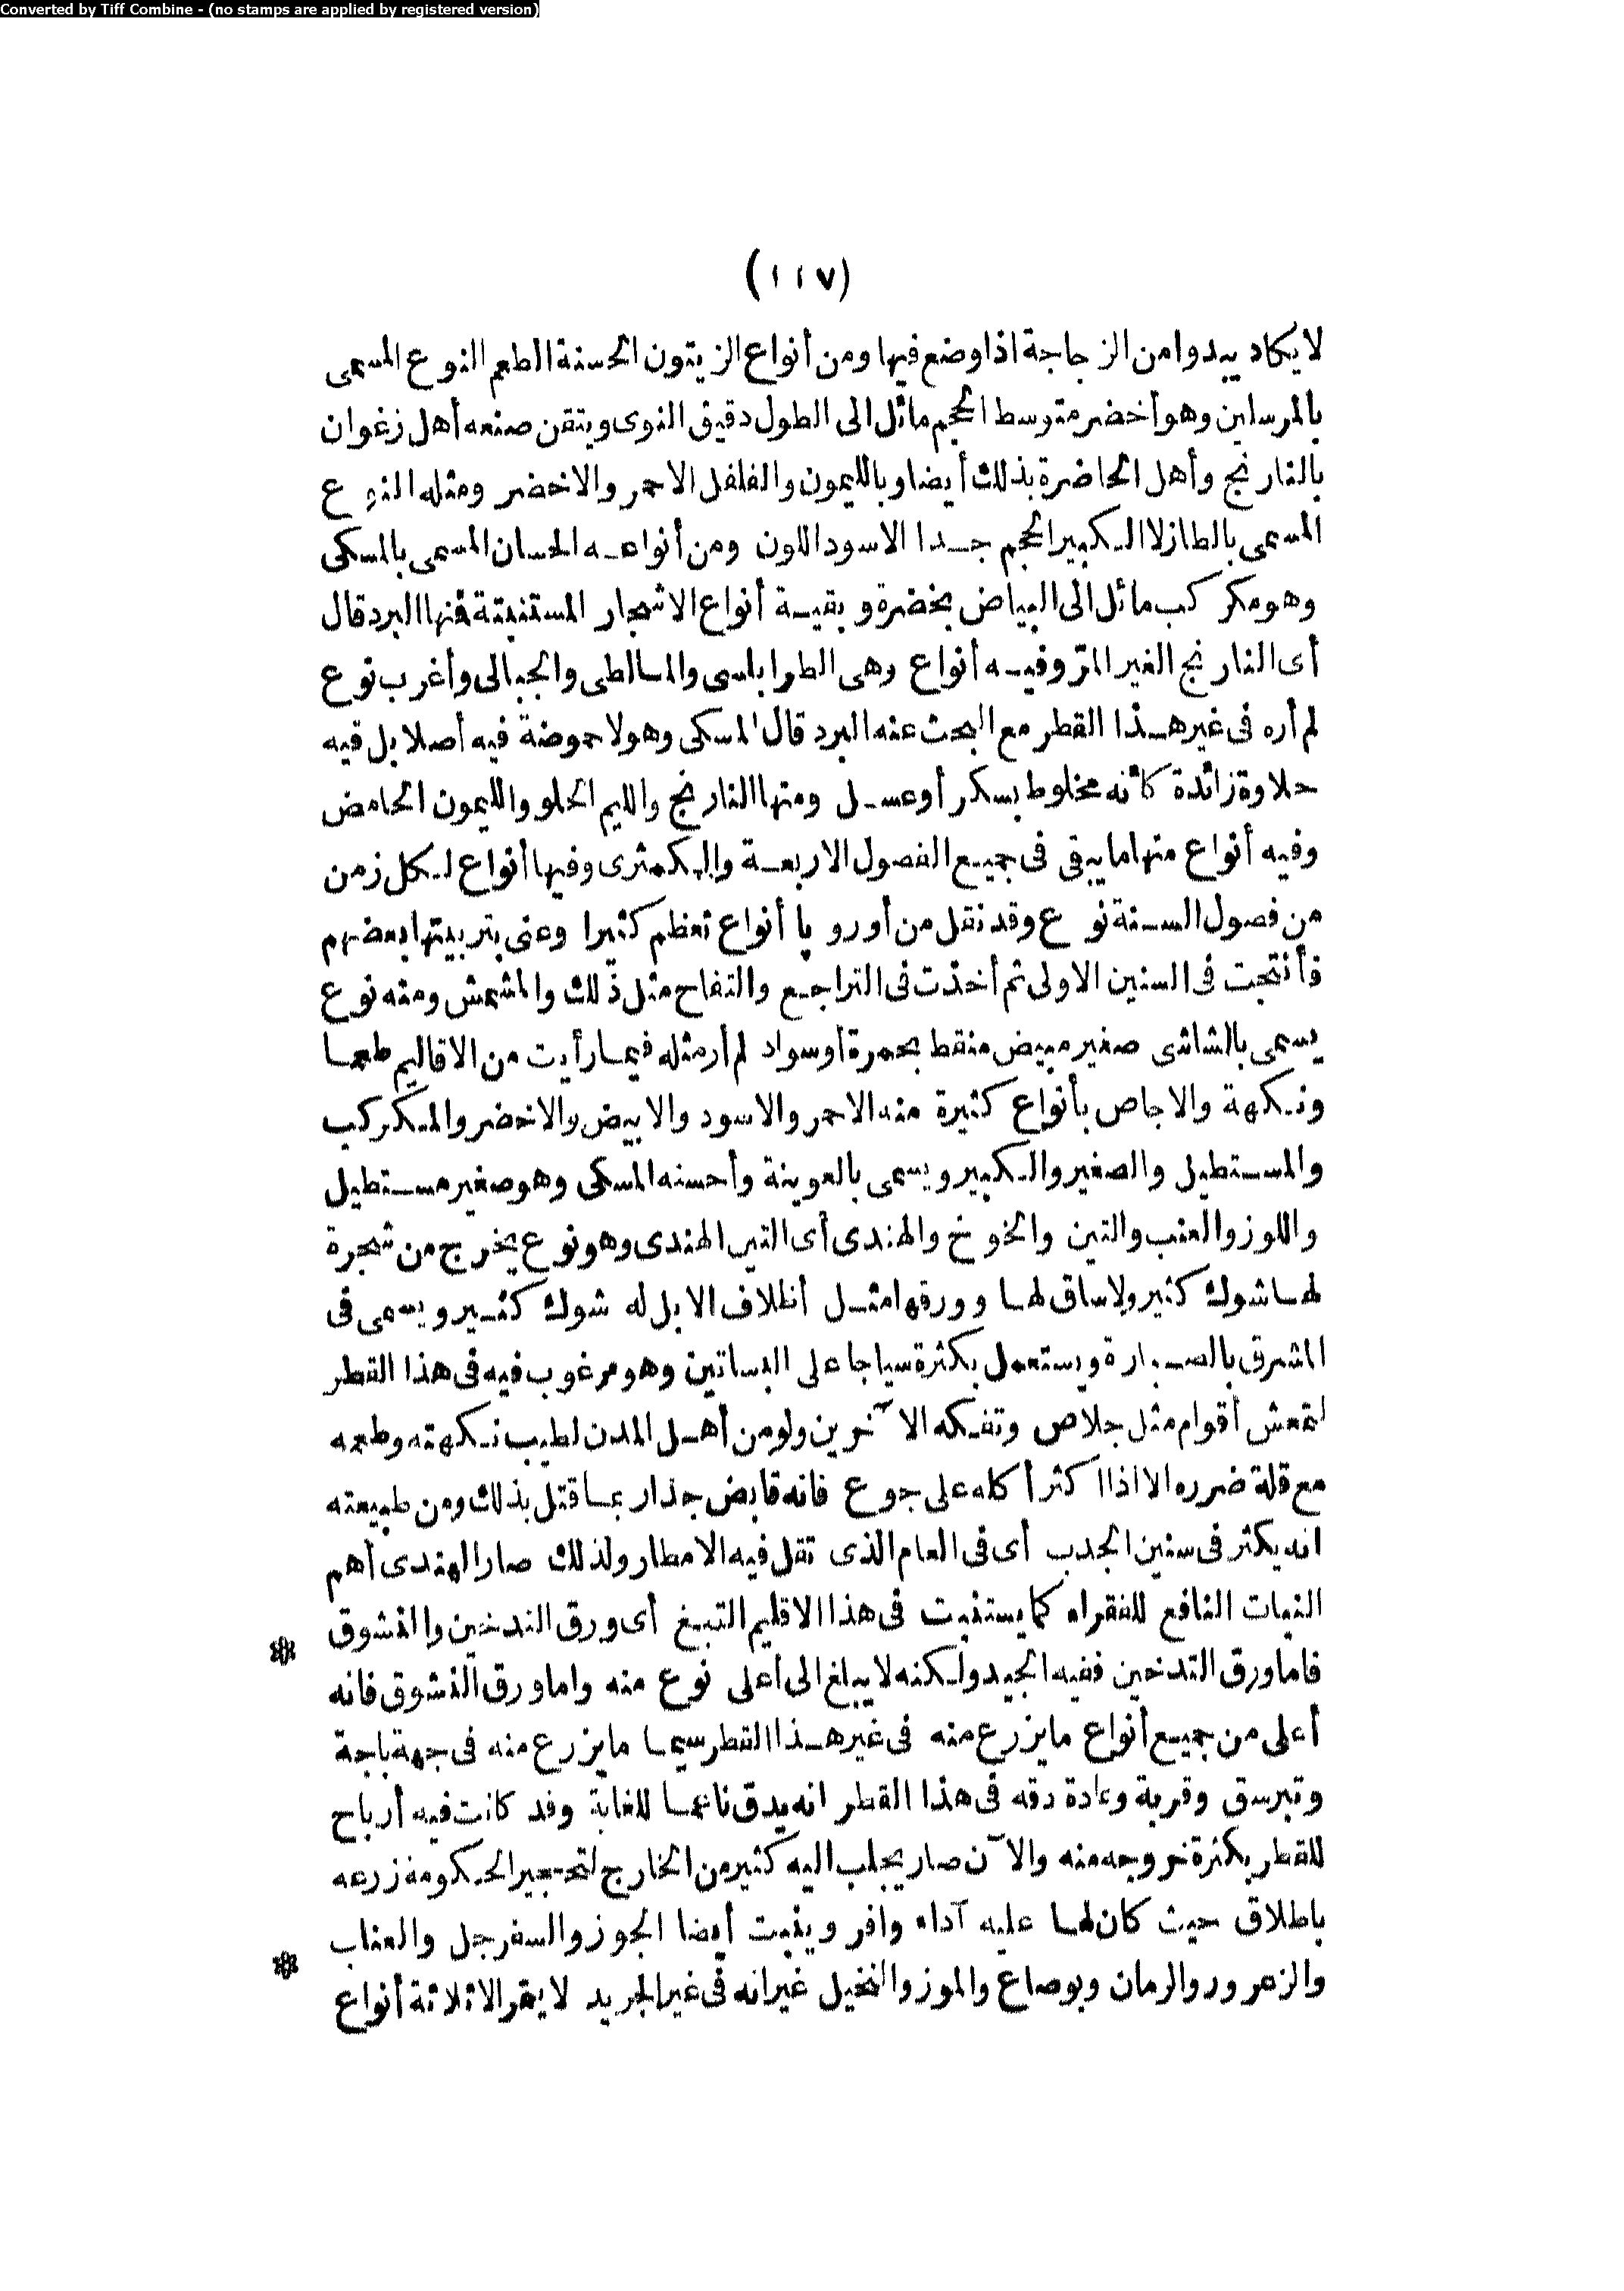 Converted by Tiff Combine - (no stamps are applied by registered version)
(١١٧)
لا يكاد يبدوا من الزجاجة اذا وضع فيها ومن أنواع الزيتون الحسنة الطعم النوع المسمى
بالمرسلين وهو أخضر متوسط الحجم مائل الى الطول دقيق النوى ويتقن صنعه أهل زغوان
بالنارنج وأهل الحاضرة بذلك أيضا وبالليمون والفلفل الاحمر والاخضر ومثله النوع
المسمى بالطازلا الكبير الحجم جدا الاسود اللون ومن أنواعه الحسان المسمى بالمسكى
وهو مكركب مائل الى البياض بخضرة وبقية أنواع الاشجار المستنبتة فنها البردقال
أى النارنج الغير المرّ وفيه أنواع وهى الطرابلسى والمالطى والجبالى وأغرب نوع
لم أره فى غير هذا القطر مع البحث عنه البردقال المسكى وهو لا حموضة فيه أصلا بل فيه
حلاوة زائدة كأنه مخلوط بسكر أو عسل ومنها النارنج والليم الحلو والليمون الحامض
وفيه أنواع منها ما يبقى فى جميع الفصول الاربعة والكمثرى وفيها أنواع لكل زمن
من فصول السنة نوع وقد نقل من أوروپا أنواع تعظم كثيرا وعنى بتربيتها بعضهم
فأنتجت فى السنين الاولى ثم أخذت فى التراجع والتفاح مثل ذلك والمشمش ومنه نوع
يسمى بالشاشى صغير مبيض منقط بحمرة أو سواد لم أر مثله فيما رأيت من الاقاليم طعما
ونكهة والاجاص بأنواع كثيرة منه الاحمر والاسود والابيض والاخضر والمكركب
والمستطيل والصغير والكبير ويسمى بالعوينة وأحسنه المسكى وهو صغير مستطيل
واللوز والعنب والتين والخوخ والهندى أى التين الهندى وهو نوع يخرج من شجرة
لها شوك كثير ولا ساق لها وورقها مثل أظلاف الابل له شوك كثير ويسمى فى
المشرق بالصبارة ويستعمل بكثرة سياجا على البساتين وهو مرغوب فيه فى هذا القطر
لتمعش أقوام مثل جلاص وتفكه الآخرين ولو من أهل المدن لطيب نكهته وطعمه
مع قلة ضرره الا اذا اكثر أكله على جوع فانه قابض جدا ربما قتل بذلك ومن طبيعته
انه يكثر فى سنين الجدب أى فى العام الذى تقل فيه الامطار ولذلك صار الهندى أهم
النبات النافع للفقراء كما يستنبت فى هذا الاقليم التبغ أى ورق التدخين والنشوق *
فاما ورق التدخين ففيه الجيد ولكنه لا يبلغ الى أعلى نوع منه واما ورق النشوق فانه
أعلى من جميع أنواع ما يزرع منه فى غير هذا القطر سيما ما يزرع منه فى جهة باجة
وتبرسق وقربة وعادة دقه فى هذا القطر انه يدق ناعما للغاية وقد كانت فيه أرباح
للقطر بكثرة خروجه منه والآن صار يجلب اليه كثير من الخارج لتحجير الحكومة زرعه
باطلاق حيث كان لها عليه آداء وافر وينبت أيضا الجوز والسفرجل والعناب *
والزعرور والرمان وبوصاع والموز والنخيل غير انه فى غير الجريد لا يثمر الا ثلاثة أنواع